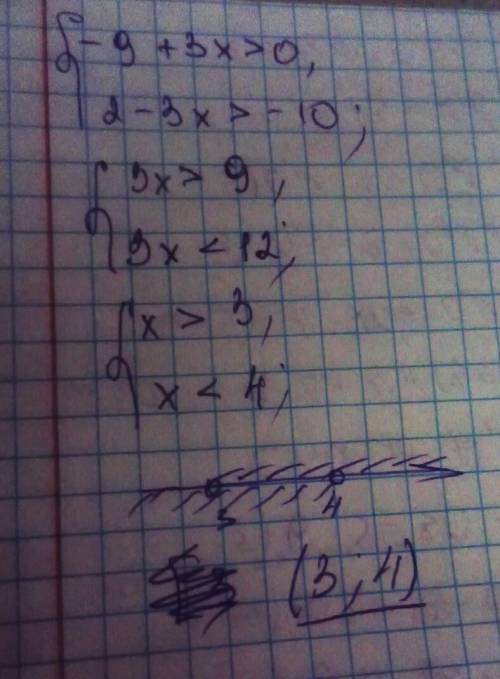 { - 9 + 3x > 0,
2 - 3x > - 10;
{ 3x > 9,
3x < 12;
{ x > 3,
x < 4;
3 4
(3; 4)